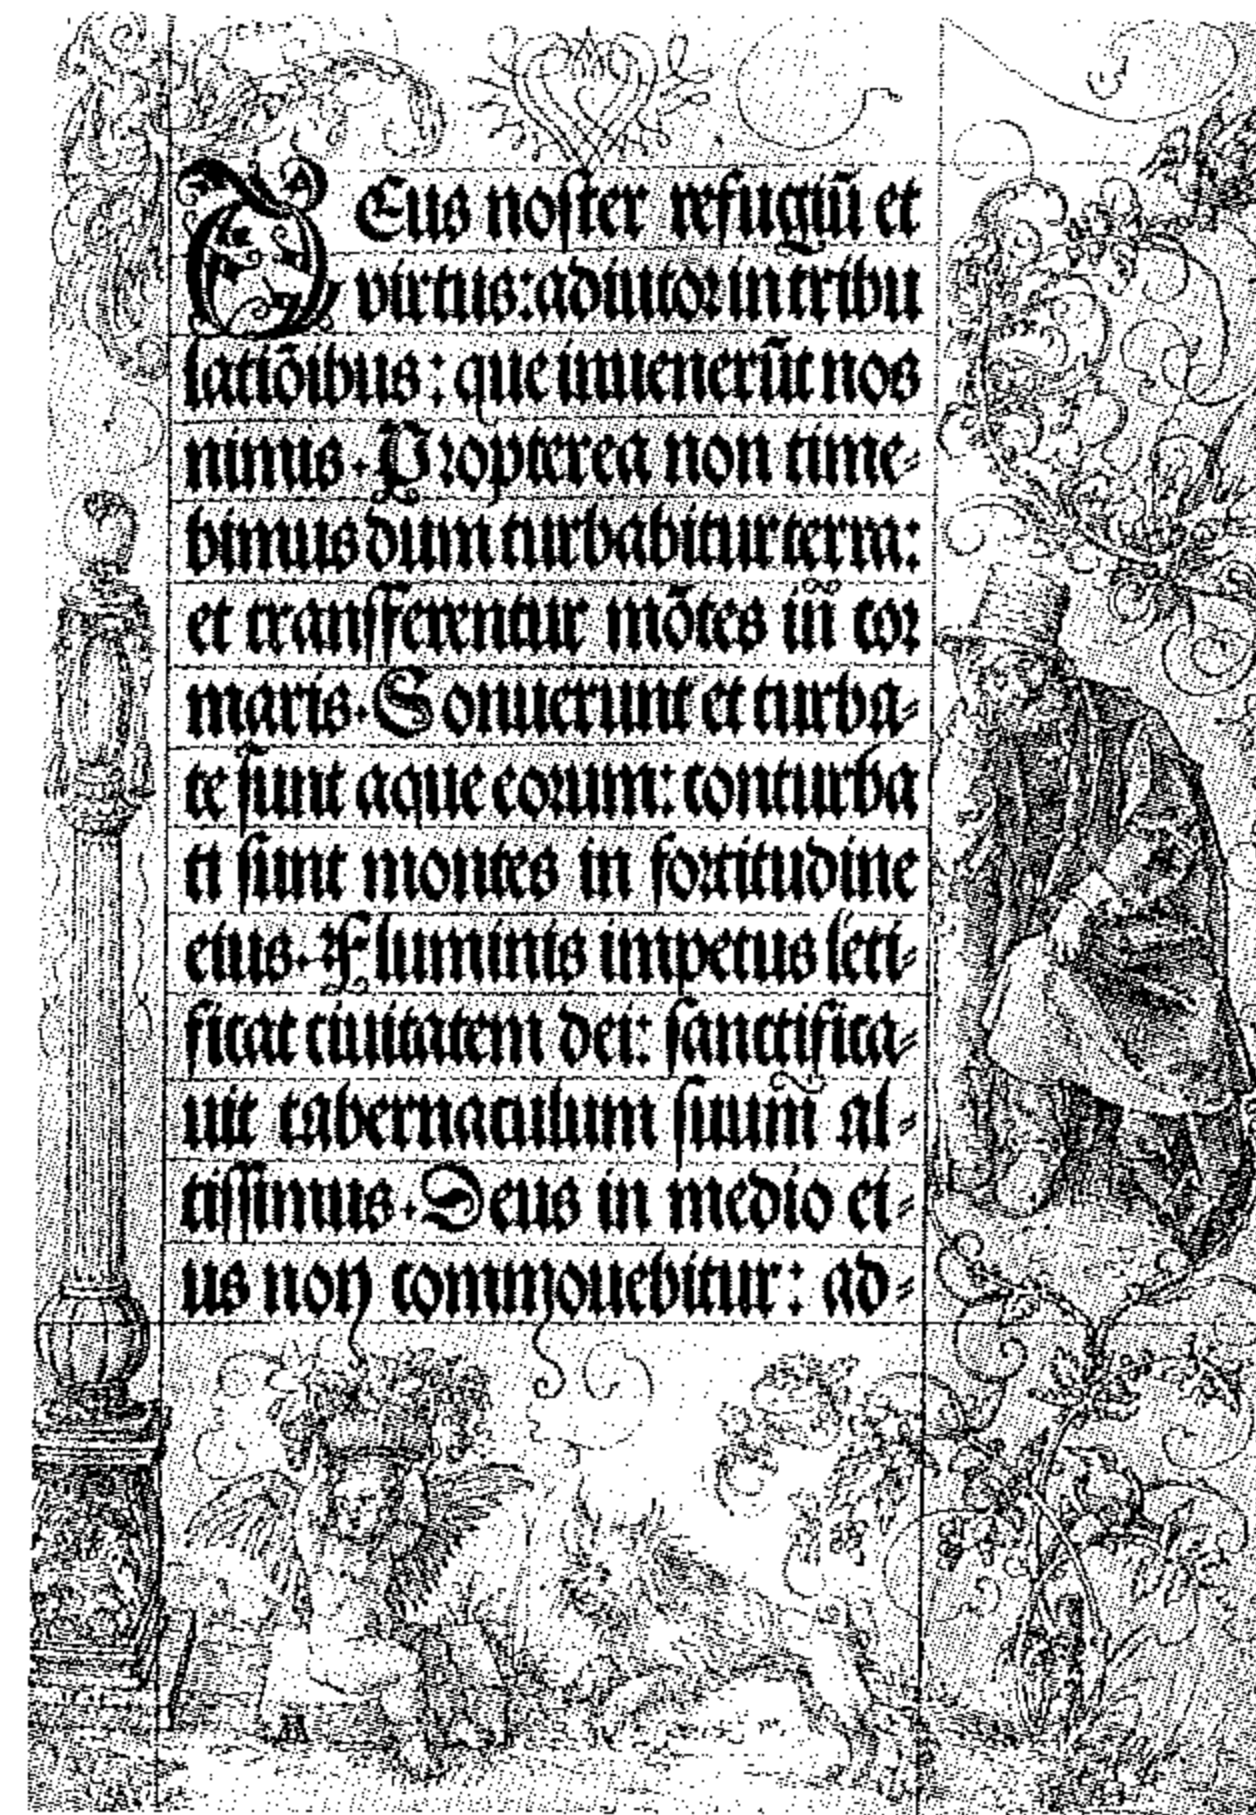 DEus noster refugiū et
virtus: adiutor in tribu
latiōibus: que inuenerūt nos
nimis. Propterea non time-
bimus dum turbabitur terra:
et transfferentur mōtes in cor
maris. Sonuerunt et turba-
te sunt aque eorum: conturba
ti sunt montes in fortitudine
eius. Fluminis impetus leti-
ficat ciuitatem dei: sanctifica-
uit tabernaculum suum al-
tissimus. Deus in medio ei-
us non commouebitur: ad-